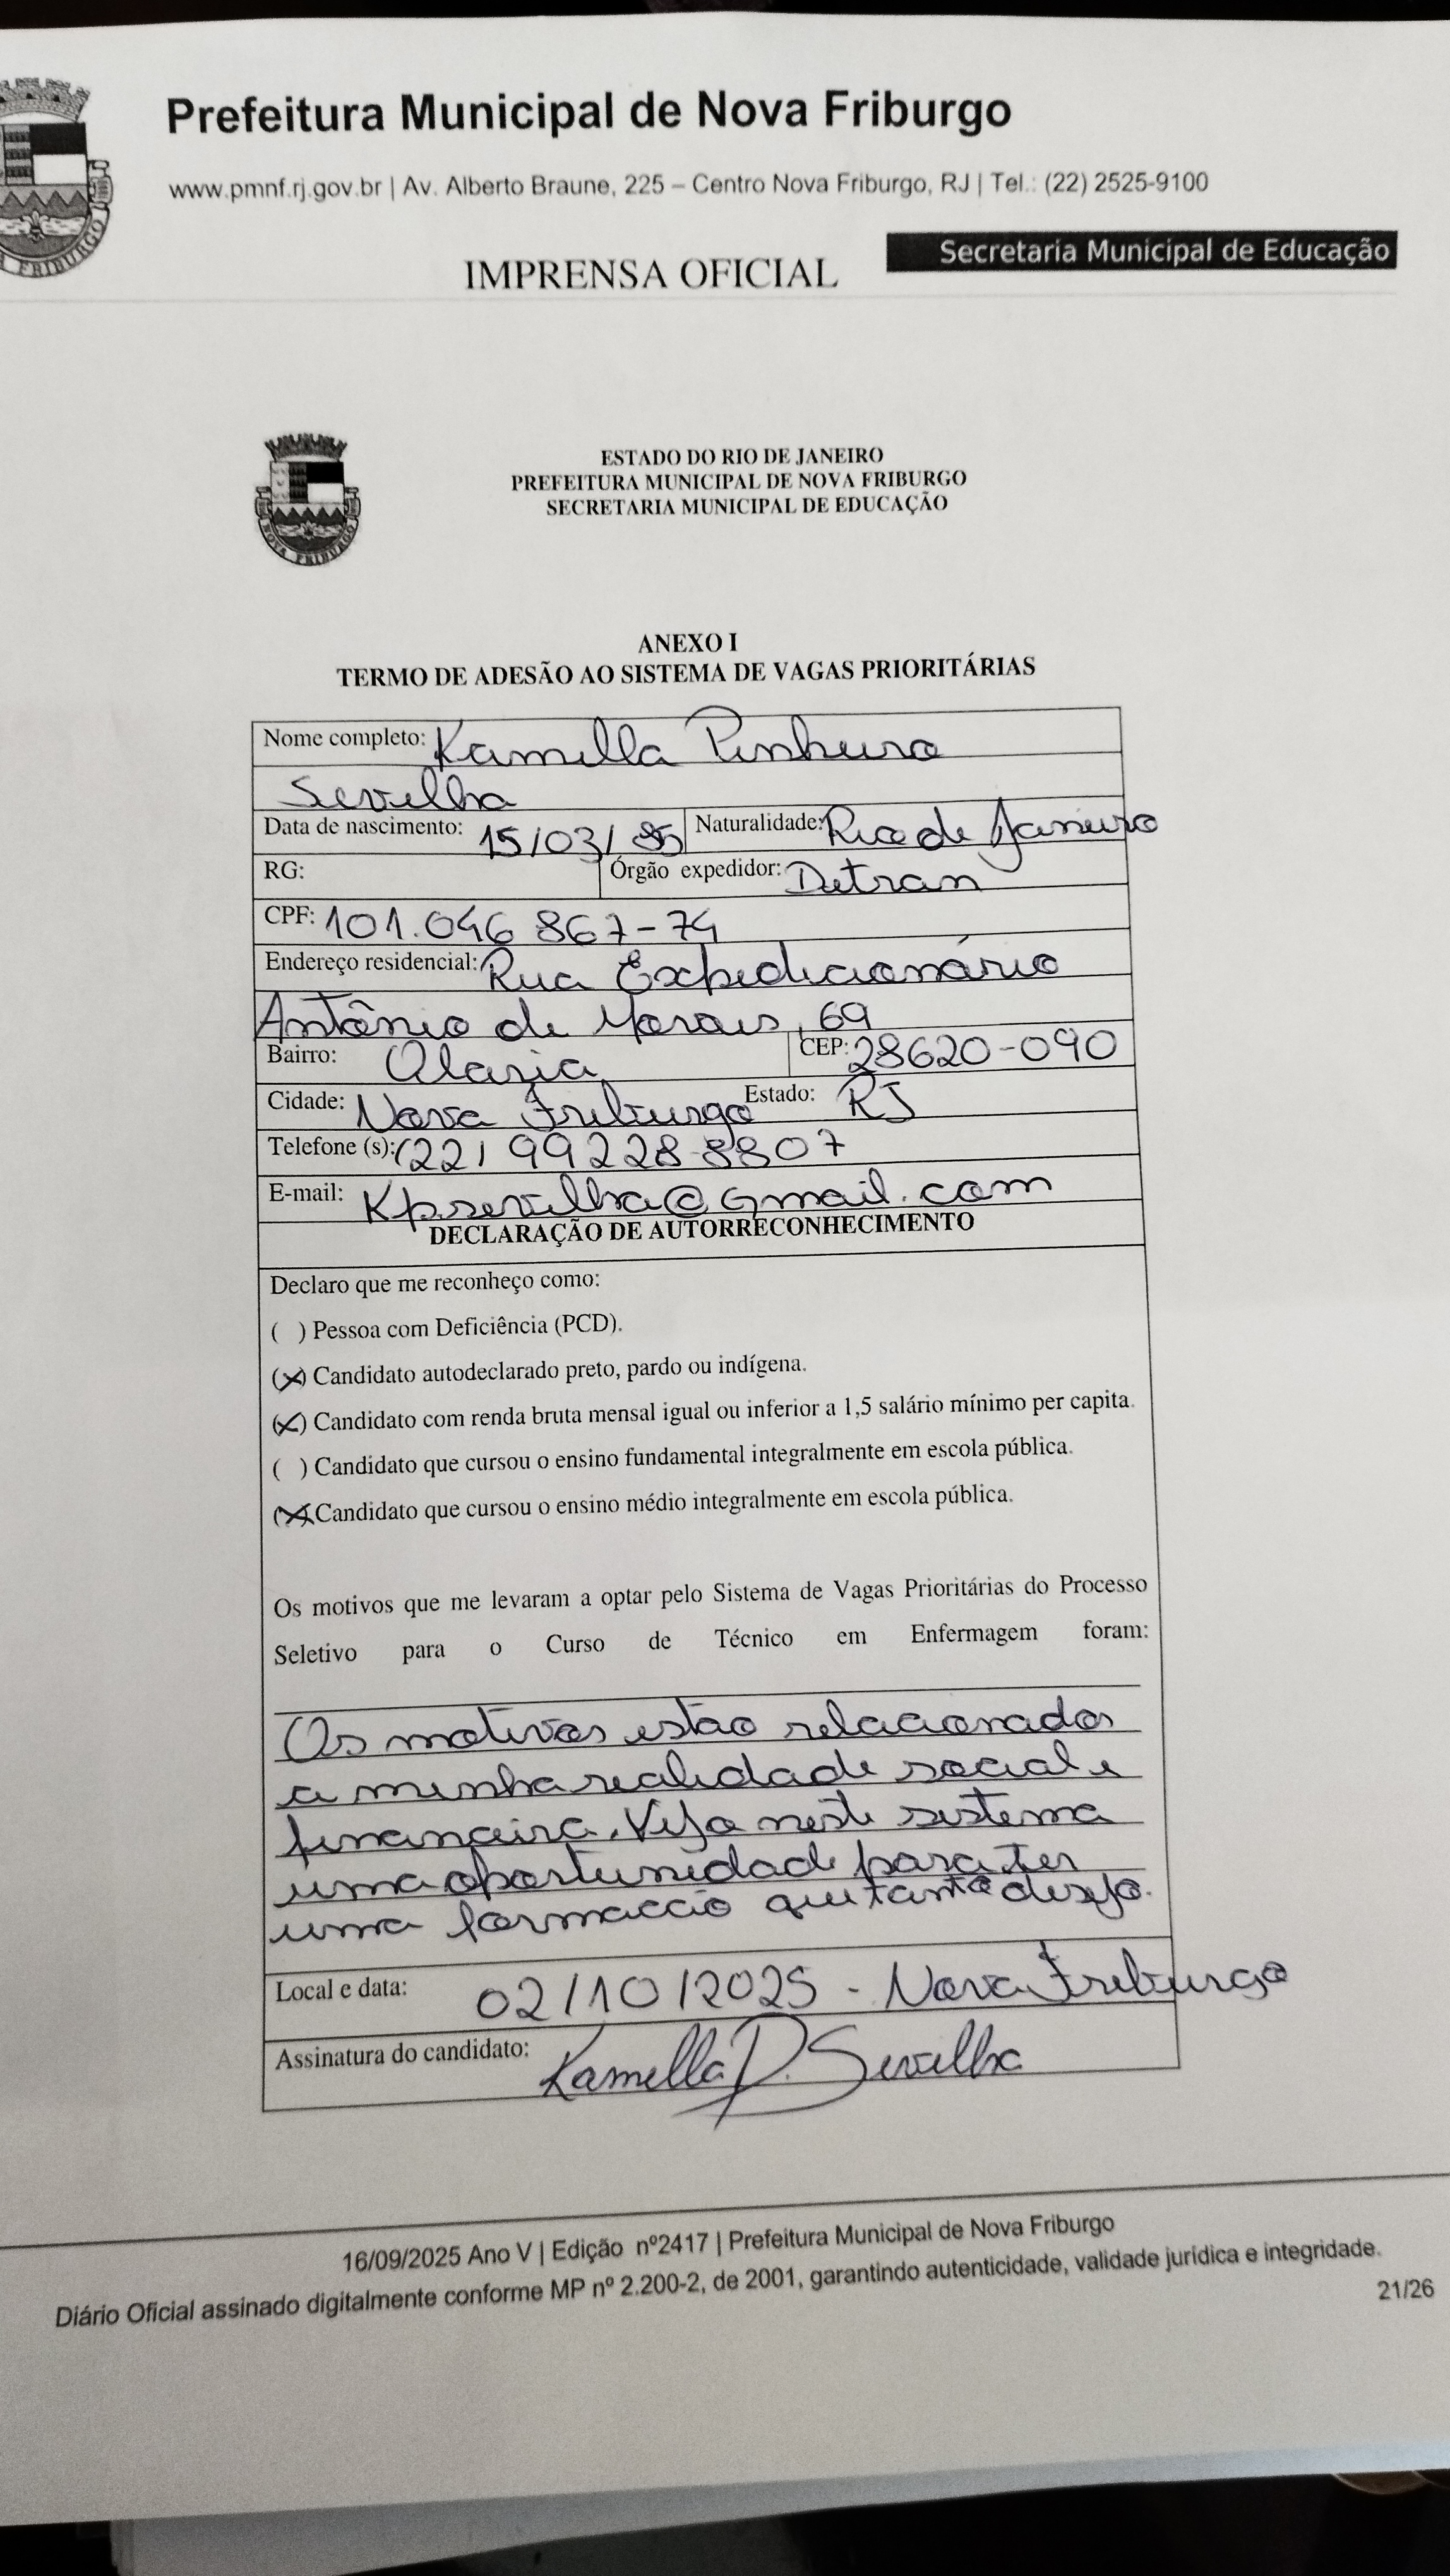 Prefeitura Municipal de Nova Friburgo
www.pmnf.rj.gov.br | Av. Alberto Braune, 225 – Centro Nova Friburgo, RJ | Tel.: (22) 2525-9100
Secretaria Municipal de Educação
IMPRENSA OFICIAL
ESTADO DO RIO DE JANEIRO
PREFEITURA MUNICIPAL DE NOVA FRIBURGO
SECRETARIA MUNICIPAL DE EDUCAÇÃO
NOVA FRIBURGO
ANEXO I
TERMO DE ADESÃO AO SISTEMA DE VAGAS PRIORITÁRIAS
Nome completo: Kamilla Pinheiro
Sevilha
Data de nascimento: 15/03/85 Naturalidade: Rio de Janeiro
RG: Órgão expedidor: Detran
CPF: 101.046 867-74
Endereço residencial: Rua Expedicionário
Antônio de Morais, 69
Bairro: Olaria CEP: 28620-090
Cidade: Nova Friburgo Estado: RJ
Telefone (s): (22) 99228-8807
E-mail: Kpsevilha@gmail.com
DECLARAÇÃO DE AUTORRECONHECIMENTO
Declaro que me reconheço como:
( ) Pessoa com Deficiência (PCD).
(X) Candidato autodeclarado preto, pardo ou indígena.
(X) Candidato com renda bruta mensal igual ou inferior a 1,5 salário mínimo per capita.
( ) Candidato que cursou o ensino fundamental integralmente em escola pública.
(X) Candidato que cursou o ensino médio integralmente em escola pública.
Os motivos que me levaram a optar pelo Sistema de Vagas Prioritárias do Processo
Seletivo para o Curso de Técnico em Enfermagem foram:
Os motivos estão relacionados
a minha realidade social e
financeira. Vejo neste sistema
uma oportunidade para ter
uma formação que tanto desejo.
Local e data: 02/10/2025 - Nova Friburgo
Assinatura do candidato: Kamilla P. Sevilha
16/09/2025 Ano V | Edição nº2417 | Prefeitura Municipal de Nova Friburgo
Diário Oficial assinado digitalmente conforme MP nº 2.200-2, de 2001, garantindo autenticidade, validade jurídica e integridade.
21/26